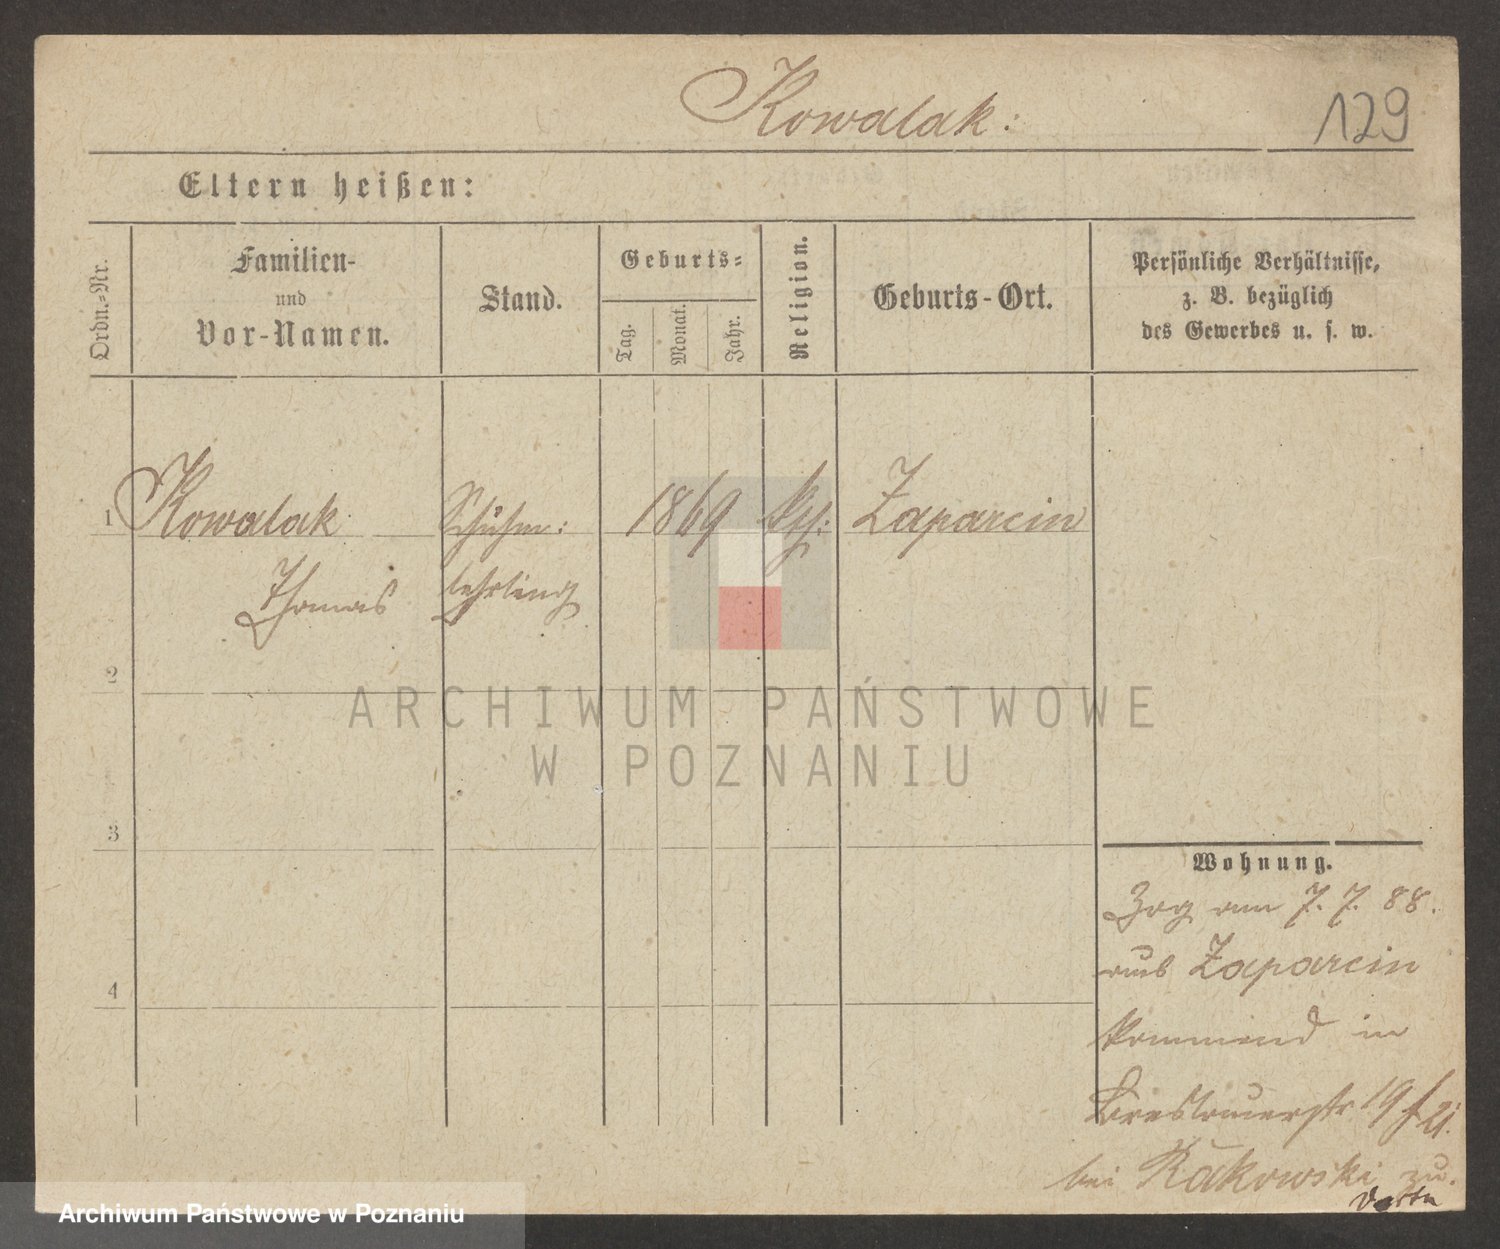 Kowalak:
129
Eltern heißen:
Ordn.-Nr.
Familien-
und
Vor-Namen.
Stand.
Geburts-
Tag.
Monat.
Jahr.
Religion.
Geburts-Ort.
Persönliche Verhältnisse,
z. B. bezüglich
des Gewerbes u. s. w.
1 Kowalak Schuhm: 1869 kth: Zaparcin
Thomas lehrling
2
ARCHIWUM PAŃSTWOWE
W POZNANIU
3
Wohnung.
Zog am 7. 7. 88.
aus Zaparcin
4
kommend in
Breslauerstr 19
bei Rakowski zu.
Archiwum Państwowe w Poznaniu